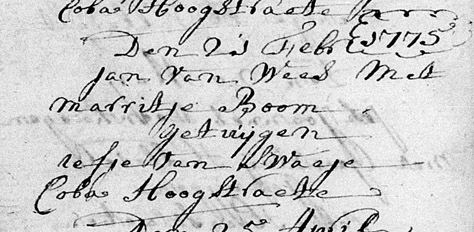 Coba Hoogstraete
Den 21 Febr 1775
Jan Van Wees Met
marritje Boom
getuijgen
Van Waaje
Coba Hoogstraete
Den 25 April